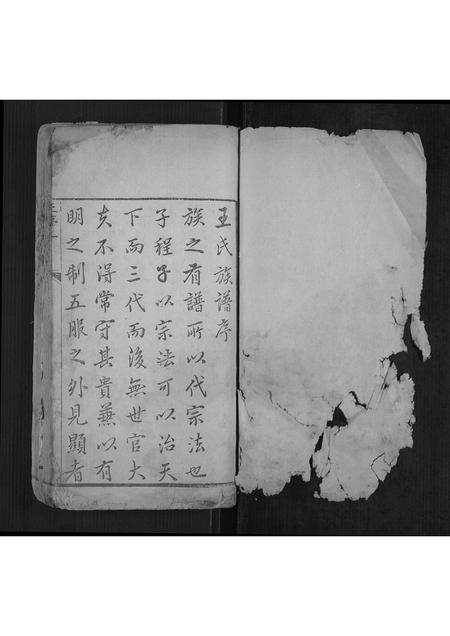 王氏族譜序
族之有譜所以代宗法也
子程子以宗法可以治天
下而三代而後無世官大
夫不得常守其貴兼以有
明之制五服之外見顯者